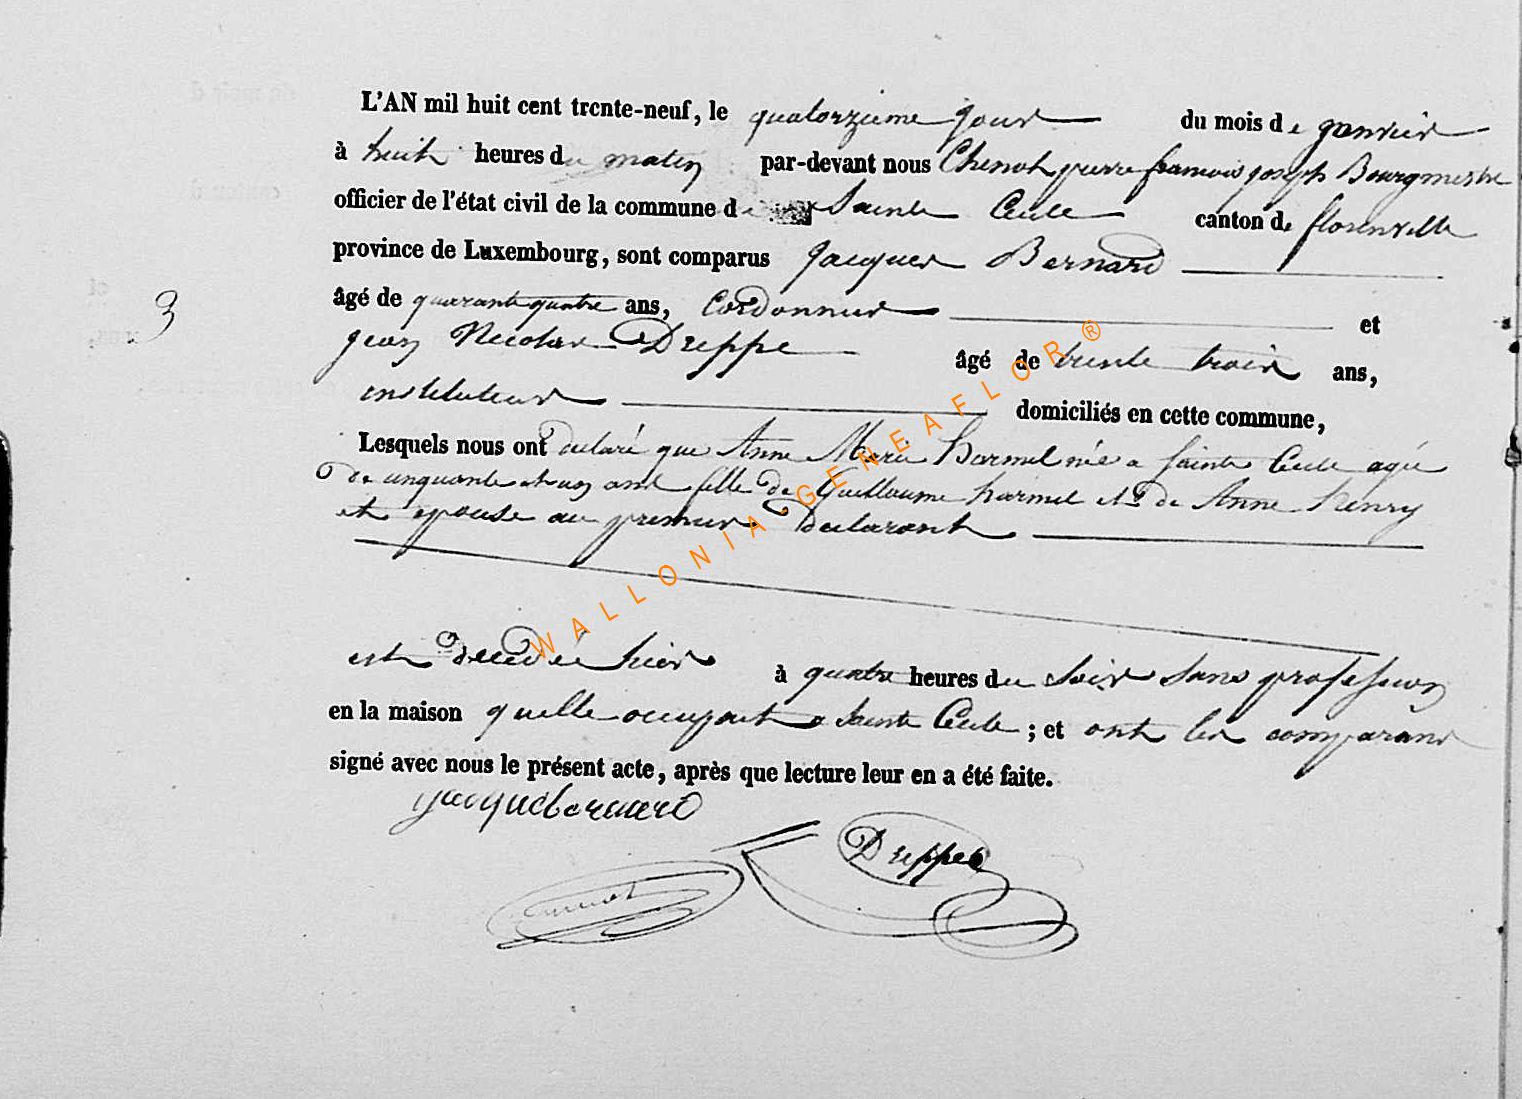 L'AN mil huit cent trente-neuf, le quatorzieme jour du mois de janvier
à huit heures du matin par-devant nous Chenot pierre francois joseph Bourgmestre
officier de l'état civil de la commune de Sainte Cecile canton de florenville
province de Luxembourg, sont comparus jacques Bernard
âgé de quarante quatre ans, Cordonnier et
3
jean Nicolas Dreppe âgé de trente trois ans,
instituteur domiciliés en cette commune,
Lesquels nous ont declaré que Anne Marie Harmel née a sainte Cecile agée
de cinquante et un ans fille de Guillaume harmel et de Anne henry
et epouse au premier Declarant
est decedée hier à quatre heures du soir sans profession
en la maison quelle occupait a Sainte Cecile ; et ont les comparans
signé avec nous le présent acte, après que lecture leur en a été faite.
jacque bernard
Dreppe
Chenot
WALLONIA-GENEAFLOR®